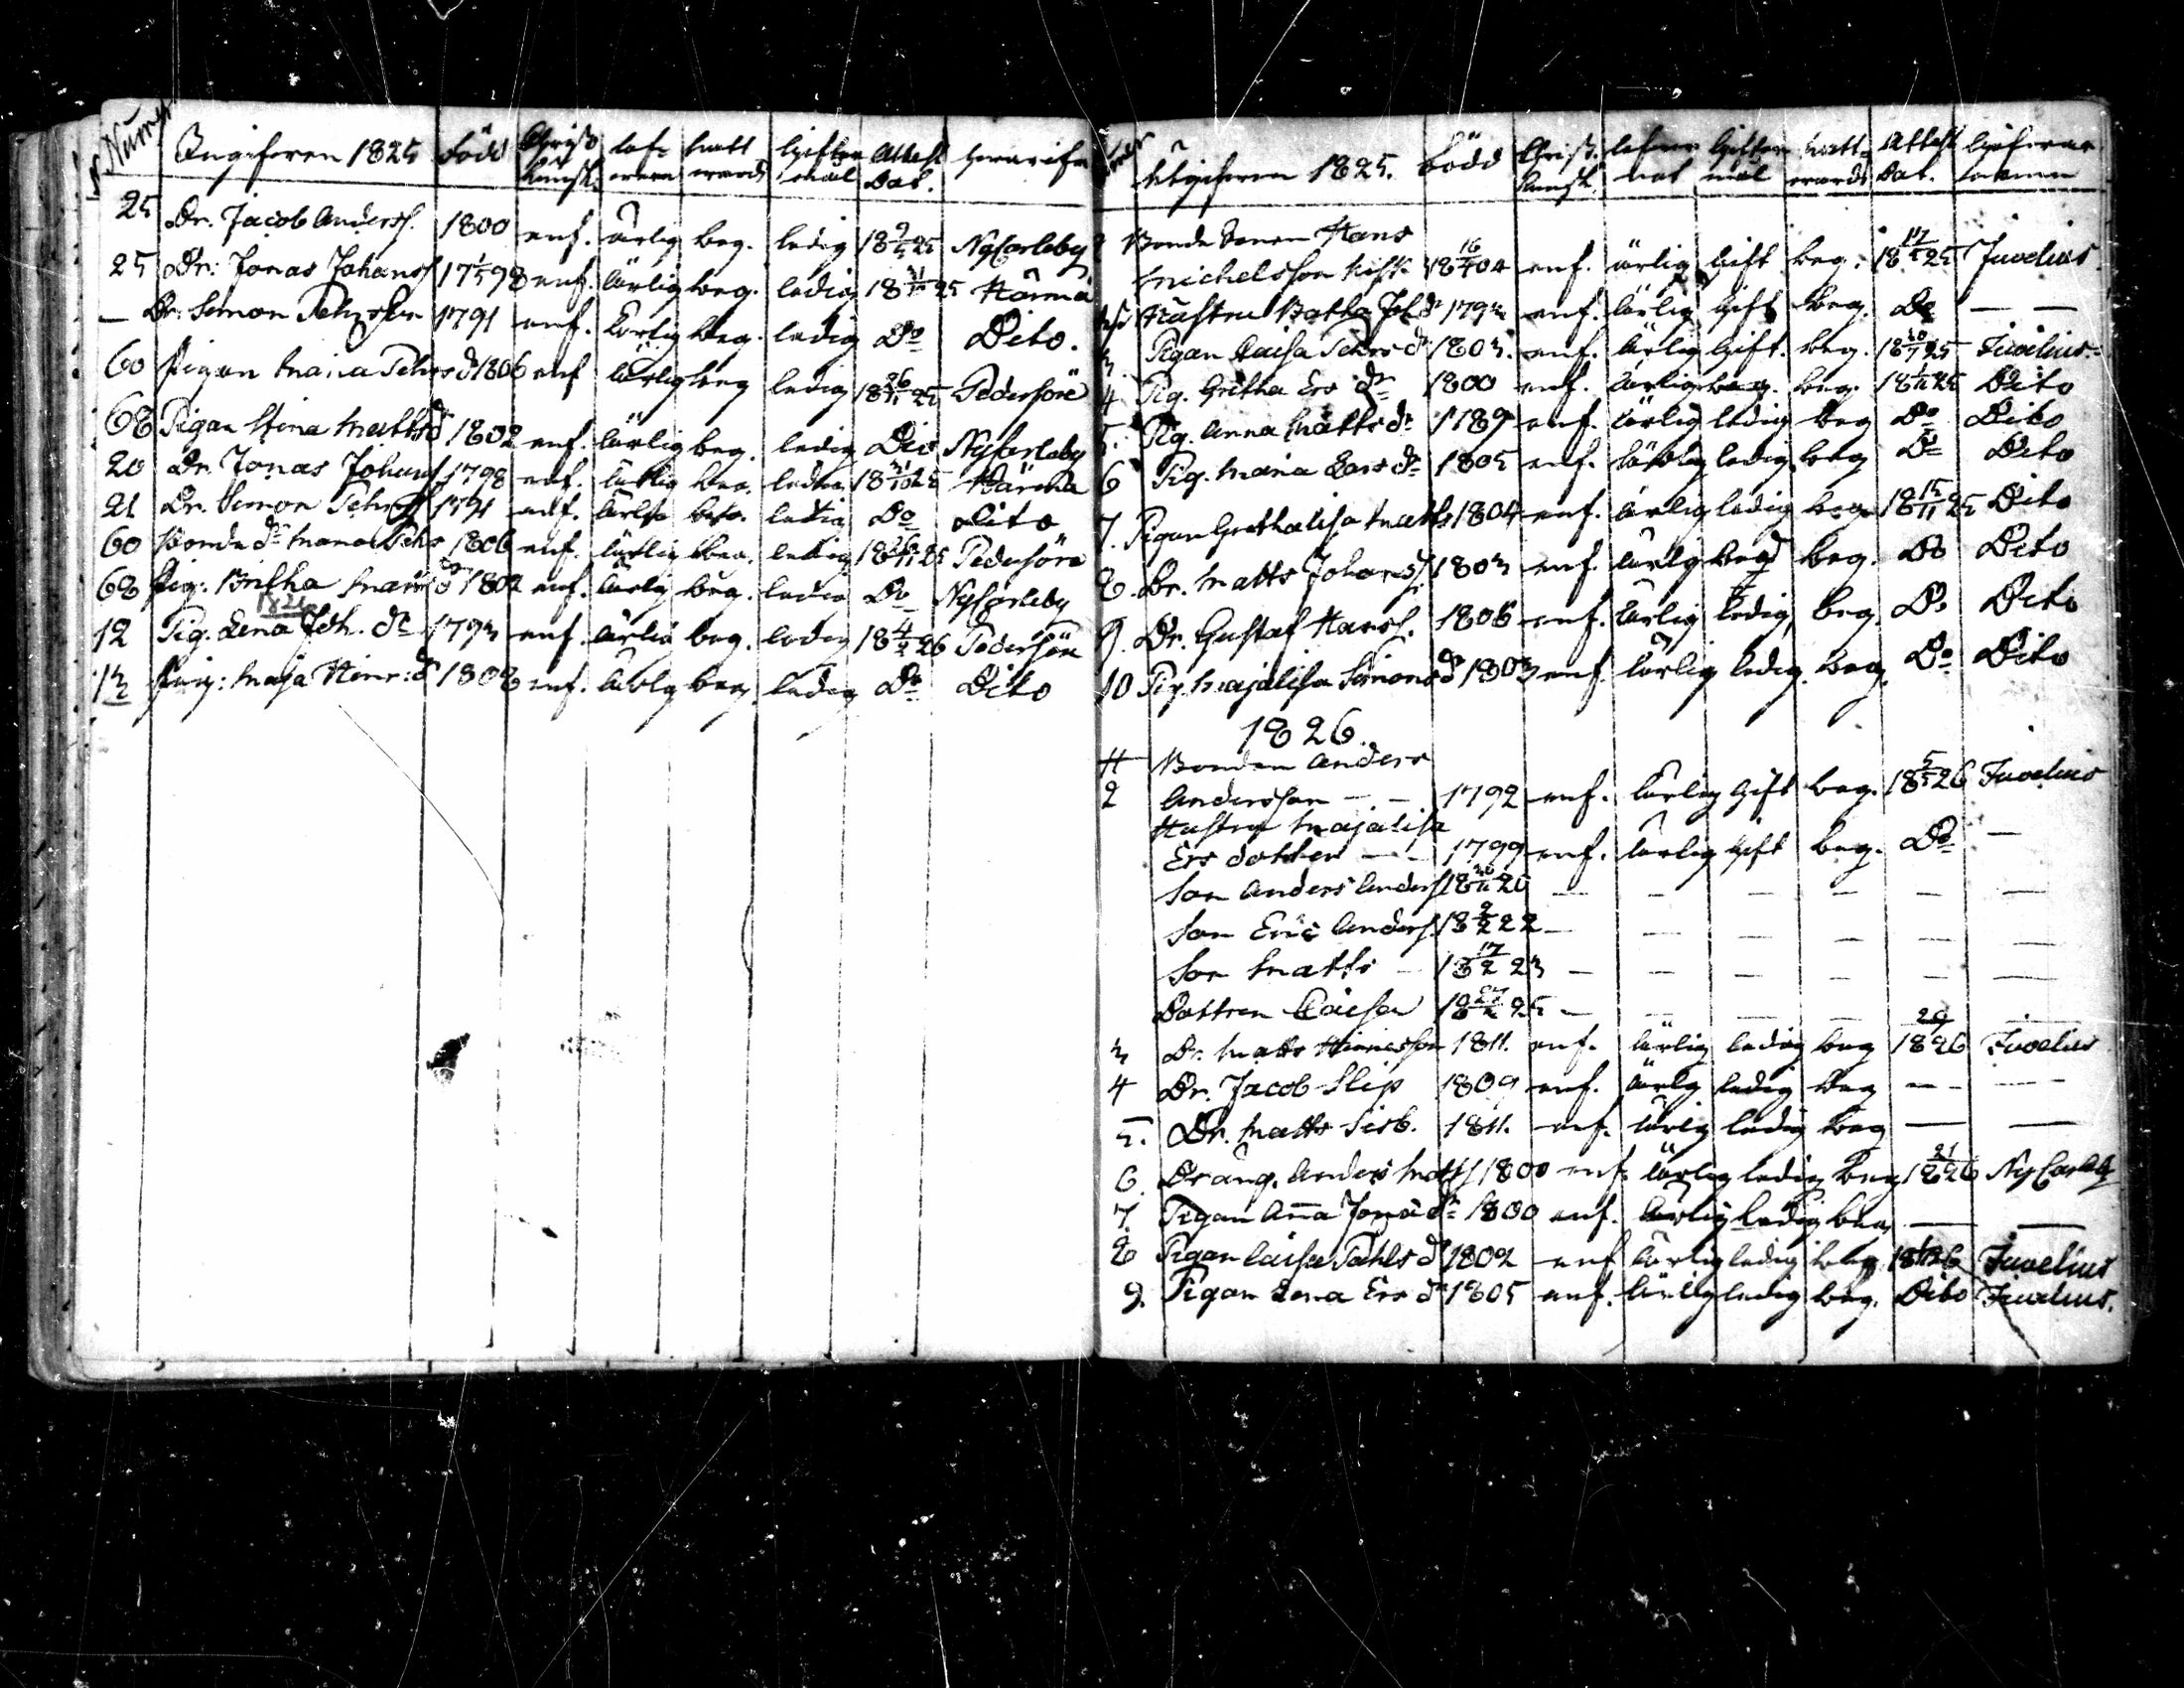 Numer
Ingifven 1825 Född Christ: kunsk. lef- erne natt- vard Giftermål Attest Dat. hvarifrån
25 Dr. Jacob Anderss. 1800 enf. ärlig beg. ledig 18 9/5 25 NyCarleby
25 Dr: Jonas Johanss 17 1/5 98 enf. ärlig beg. ledig 18 31/10 25 Härmä
— Dr. Simon Pehrsson 1791 enf. ärlig beg. ledig Do Dito.
60 Pigan Maria Pehrs dr 1806 enf ärlig beg ledig 18 26/11 25 Pedersöre
68 Pigan Stina Matts dr 1802 enf. ärlig beg. ledig Dio NyCarleby
20 Dr. Jonas Johans 1798 enf. ärlig beg. ledig 18 31/10 25 Härmä
21 Dr. Simon Pehrss 1791 enf. ärlig beg. ledig Do Dito
60 Bonde dr Maria Pehrs 1806 enf. ärlig beg. ledig 18 26/11 25 Pedersöre
68 Pig: Britha Matts dr 1802 enf. ärlig beg. ledig Do NyCarleby
1826
12 Pig. Lena Joh. dr 1793 enf. ärlig beg. ledig 18 4/2 26 Pedersöre
13 Pig: Maja Hinr: dr 1808 enf. ärlig beg. ledig Do Dito
Utgifven 1825. Född Christ. kunsk. lefver nat Gifter mål natt- vards Attest Dat. Gifvarens namn
2 Bonde Sonen Hans
Michelsson 18 16/4 04 enf. ärlig Gift beg. 18 17/5 25 Juvelius.
Hustru Batha Joh dr 1793 enf. ärlig Gift beg. Do — —
3 Pigan Caisa Pehrs dr 1803. enf. ärlig Gift. beg. 18 20/7 25 Juvelius
4 Pig. Gretha Ers dr 1800 enf. ärlig beg. beg. 18 1/11 25 Dito
5. Pig. Anna Matts dr 1789 enf. ärlig ledig beg Do Dito
6 Pig. Maria Lars dr 1805 enf. ärlig ledig beg Do Dito
7. Pigan Grethalisa Matts 1804 enf. ärlig ledig beg 18 15/11 25 Dito
8. Dr. Matts Johanss. 1803 enf. ärlig beg. Do Dito
9. Dr. Gustaf Hanss. 1806 enf. ärlig ledig beg. Do Dito
10 Pig. Majalisa Simons dr 1803 enf. ärlig ledig. beg. Do Dito
1826.
Bonden Anders
2 Andersson — . — 1792 enf. ärlig Gift beg. 18 5/5 26 Juvelius
Hustru Majalisa
Ers dotter — - 1799 enf. ärlig Gift beg. Do —
Son Anders Anderss 18 26/11 20 — — — — — —
Son Eric Anderss. 18 9/2 22 — — — — — —
Son Matts — 18 17/2 23 — — — — — —
Dottren Caisa 18 27/2 25 — — — — — —
3 Dr. Matts Hinricsson 1811. enf. ärlig ledig beg 18 29 26 Juvelius
4 Dr. Jacob Slip 1809 enf. ärlig ledig beg — - — -
5. Dr. Matts Sisb. 1811. enf. ärlig ledig beg — —
6. Dräng. Anders Matss 1800 enf. ärlig ledig beg 18 21 26 NyCarleby
7. Pigan Anna Jona dr 1800 enf. ärlig ledig beg — —
8 Pigan Caisa Påhls dr 1802 enf ärlig ledig beg 18 26 Juvelius
9. Pigan Lena Ers dr 1805 enf. ärlig ledig beg. Dito Juvelius.